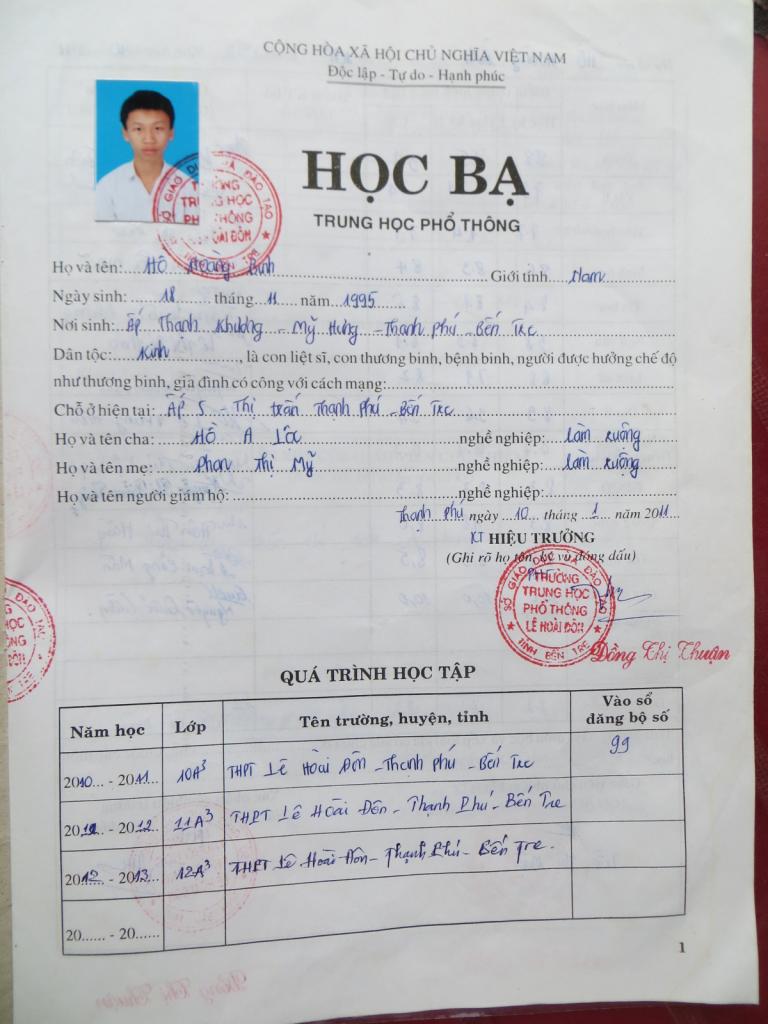 CỘNG HÒA XÃ HỘI CHỦ NGHĨA VIỆT NAM
Độc lập - Tự do - Hạnh phúc
HỌC BẠ
TRUNG HỌC PHỔ THÔNG
Họ và tên: Hồ Hoàng Binh Giới tính Nam
Ngày sinh: 18 tháng 11 năm 1995
Nơi sinh: Ấp Thạnh Khương - Mỹ Hưng - Thạnh Phú - Bến Tre
Dân tộc: Kinh, là con liệt sĩ, con thương binh, bệnh binh, người được hưởng chế độ
như thương binh, gia đình có công với cách mạng:
Chỗ ở hiện tại: Ấp 5 - Thị trấn Thạnh Phú - Bến Tre
Họ và tên cha: Hồ A Lộc nghề nghiệp: Làm ruộng
Họ và tên mẹ: Phan Thị Mỹ nghề nghiệp: Làm ruộng
Họ và tên người giám hộ: nghề nghiệp:
Thạnh Phú ngày 10 tháng 1 năm 2011
KT HIỆU TRƯỞNG
(Ghi rõ họ tên, ký và đóng dấu)
SỞ GIÁO DỤC VÀ ĐÀO TẠO
TRƯỜNG
TRUNG HỌC
PHỔ THÔNG
LÊ HOÀI ĐÔN
TỈNH BẾN TRE
Đồng Thị Thuận
QUÁ TRÌNH HỌC TẬP
Năm học Lớp Tên trường, huyện, tỉnh Vào sổ đăng bộ số
2010 - 2011 10A3 THPT Lê Hoài Đôn - Thạnh Phú - Bến Tre 99
2011 - 2012 11A3 THPT Lê Hoài Đôn - Thạnh Phú - Bến Tre
2012 - 2013 12A3 THPT Lê Hoài Đôn - Thạnh Phú - Bến Tre.
20...... - 20......
1